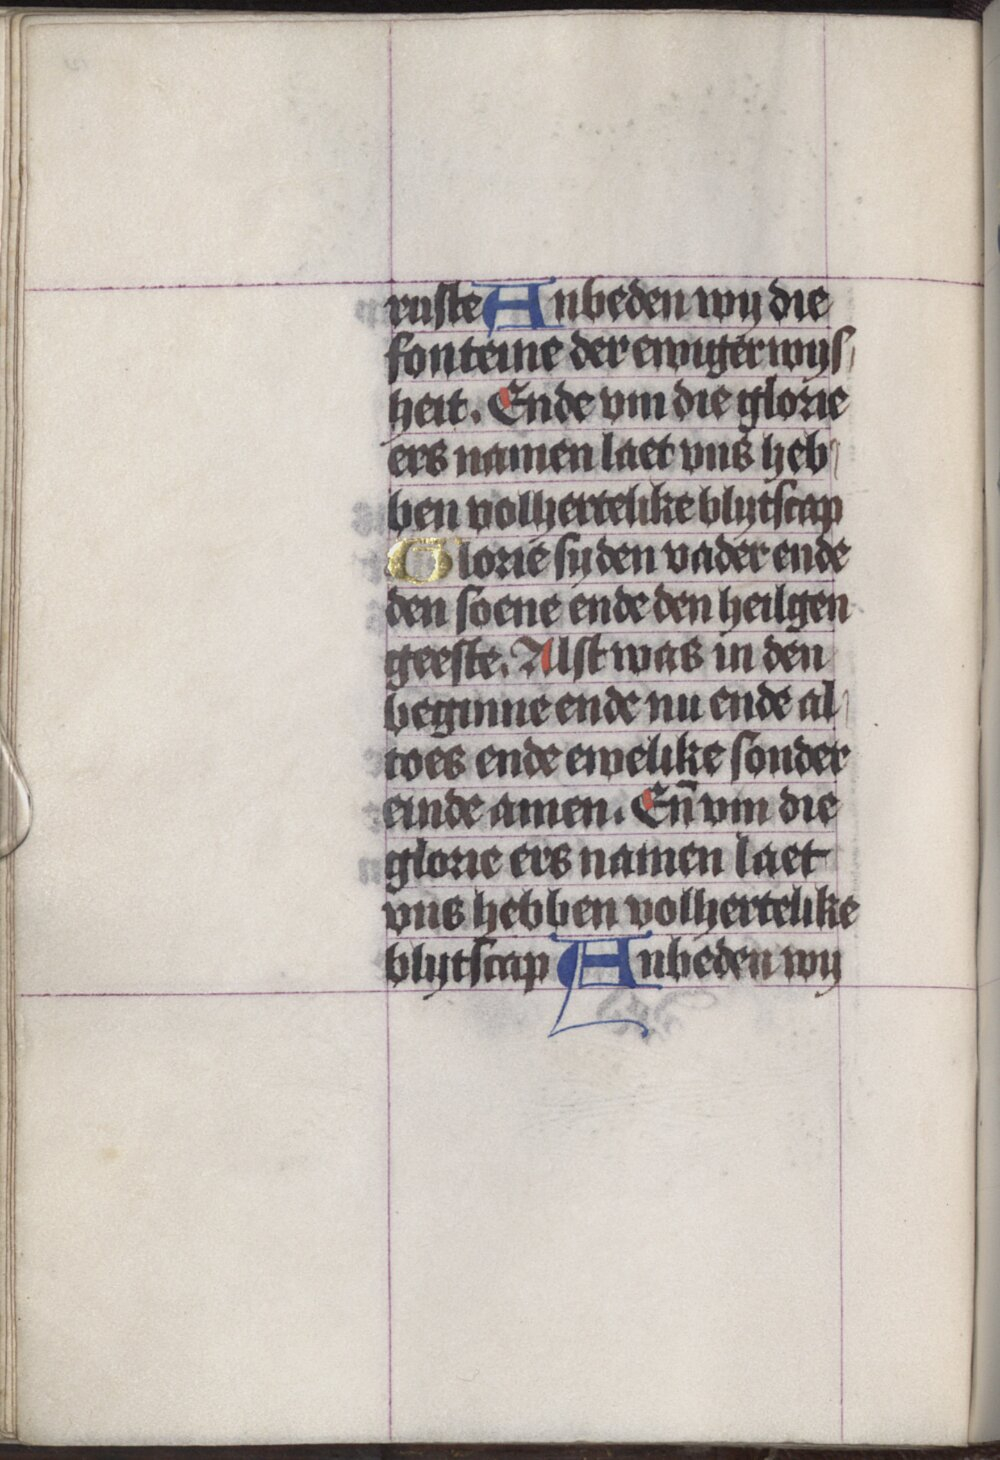 ruste Anbeden wij die
fonteine der ewiger wijs/
heit. Ende vm die glorie
ers namen laet vns heb/
ben volhertelike blijtscap
Glorie sy den vader ende
den soene ende den heilgen
geeste. Alst was in den
beginne ende nu ende al/
toes ende ewelike sonder
einde amen. En̄ vm die
glorie ers namen laet
vns hebben volhertelike
blijtscap Anbeden wij